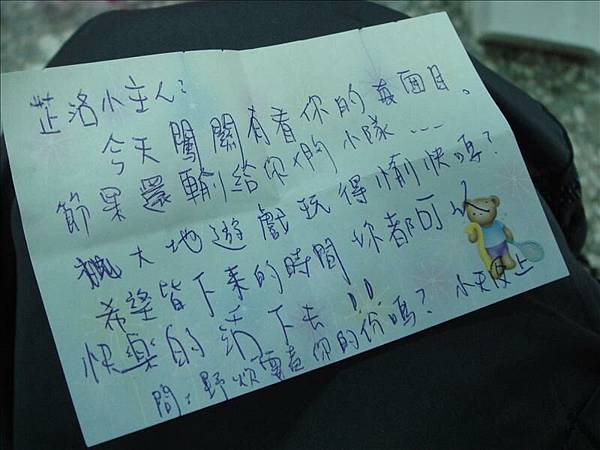 芷洛小主人：
今天闖關有看你的真面目。
節果還輸給你們小隊...
大地遊戲玩得愉快嗎？
希望皆下來的時間妳都可以
快樂的活下去!!
小天使上
問：野炊需煮你的份嗎？